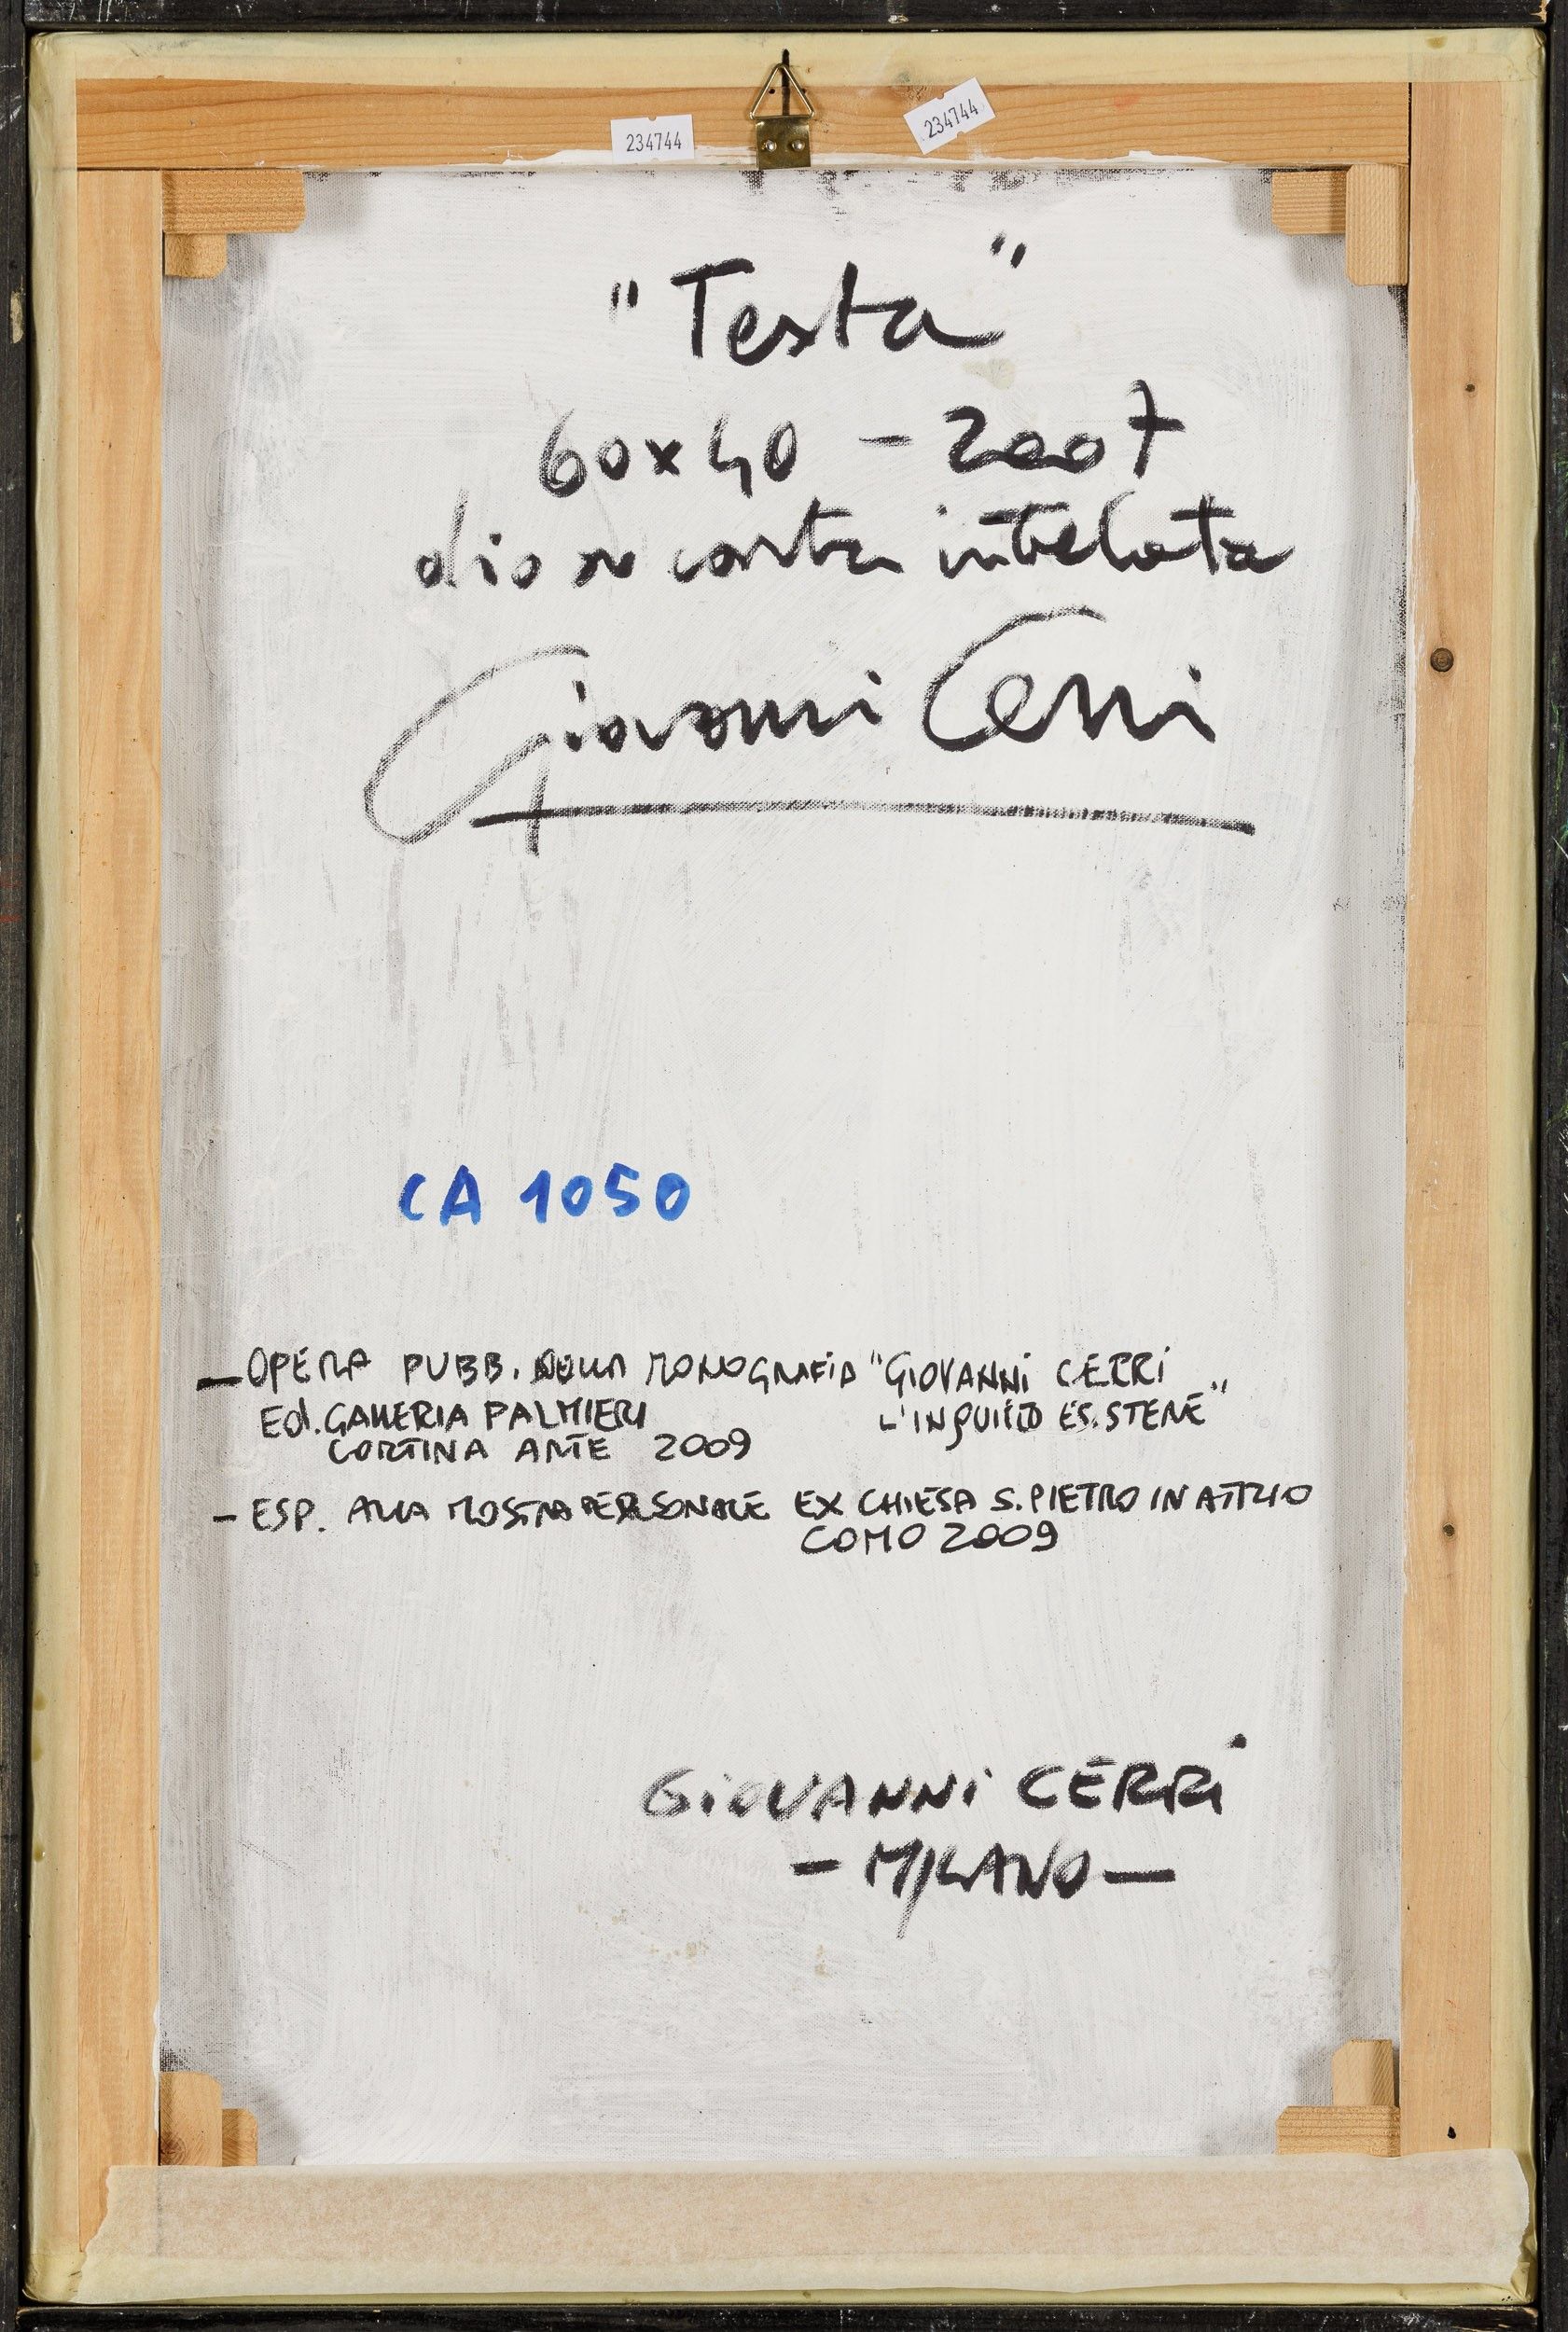 234744
234744
"Testa"
60x40 - 2007
olio su carta intelata
Giovanni Cerri
CA 1050
- OPERA PUBB. NELLA MONOGRAFIA "GIOVANNI CERRI
L'INQUIETO ESISTERE"
Ed. GALLERIA PALMIERI
CORTINA ARTE 2009
- ESP. ALLA MOSTRA PERSONALE EX CHIESA S. PIETRO IN ATRIO
COMO 2009
GIOVANNI CERRI
- MILANO -